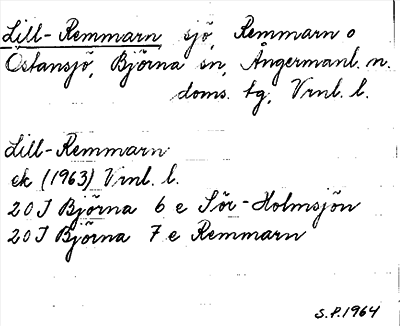 Lill-Remmarn sjö, Remmarn o
Östansjö, Björna sn, Ångermanl. n.
doms. tg, Vrnl. l.
Lill-Remmarn
ek (1963) Vrnl. l.
20J Björna 6 e Sör-Holmsjön
20J Björna 7 e Remmarn
S.P. 1964